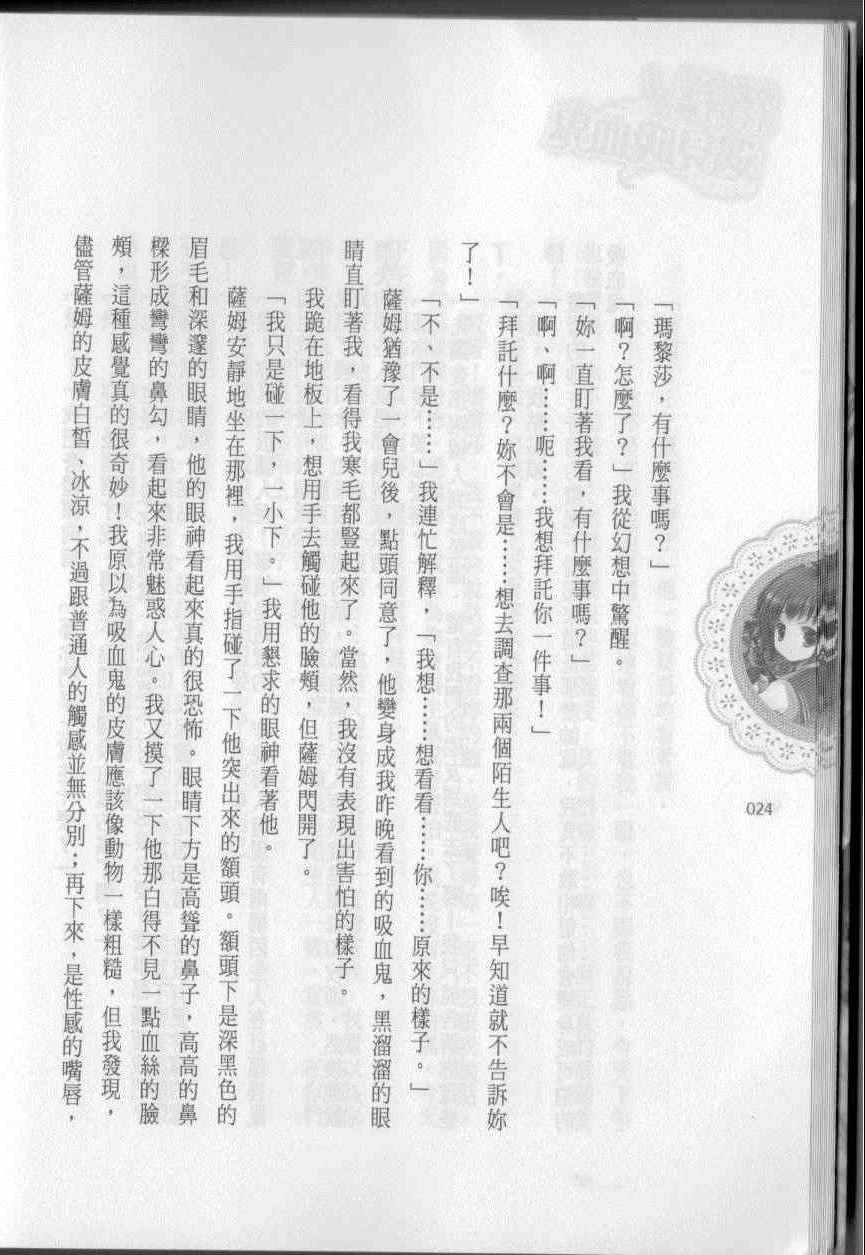 「瑪黎莎，有什麼事嗎？」
「啊？怎麼了？」我從幻想中驚醒。
「妳一直盯著我看，有什麼事嗎？」
「啊、啊……呃……我想拜託你一件事！」
「拜託什麼？妳不會是……想去調查那兩個陌生人吧？唉！早知道就不告訴妳
了！」
「不、不是……」我連忙解釋，「我想……想看看……你……原來的樣子。」
薩姆猶豫了一會兒後，點頭同意了，他變身成我昨晚看到的吸血鬼，黑溜溜的眼
睛直盯著我，看得我寒毛都豎起來了。當然，我沒有表現出害怕的樣子。
我跪在地板上，想用手去觸碰他的臉頰，但薩姆閃開了。
「我只是碰一下，一小下。」我用懇求的眼神看著他。
薩姆安靜地坐在那裡，我用手指碰了一下他突出來的額頭。額頭下是深黑色的
眉毛和深邃的眼睛，他的眼神看起來真的很恐怖。眼睛下方是高聳的鼻子，高高的鼻
樑形成彎彎的鼻勾，看起來非常魅惑人心。我又摸了一下他那白得不見一點血絲的臉
頰，這種感覺真的很奇妙！我原以為吸血鬼的皮膚應該像動物一樣粗糙，但我發現，
儘管薩姆的皮膚白皙、冰涼，不過跟普通人的觸感並無分別；再下來，是性感的嘴唇，
024